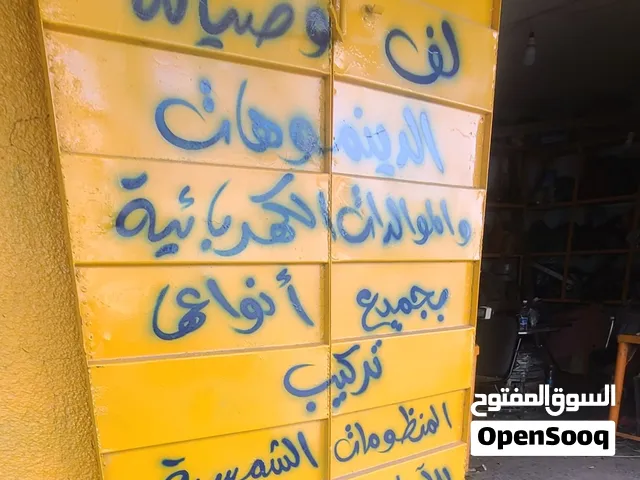 لف وصيانة
الدينموهات
والموالدات الكهربائية
بجميع أنواعها
تركيب
المنظومات الشمسية
السوق المفتوح
OpenSooq